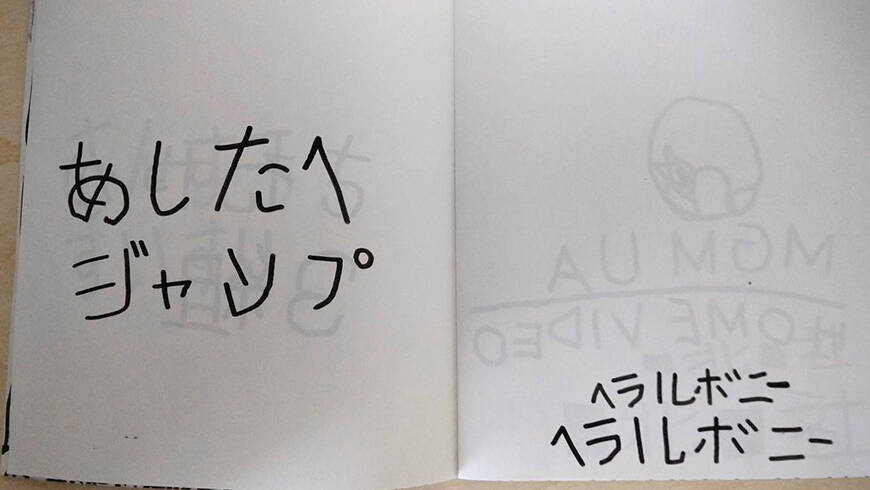 あしたへ
ジャンプ
MGM UA
HOME VIDEO
ヘラルボニー
ヘラルボニー